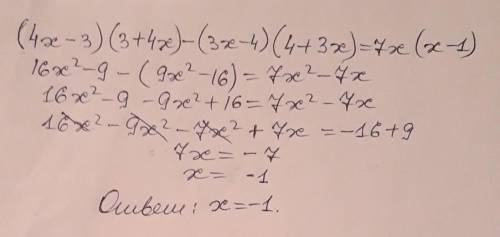 (4x-3)(3+4x)-(3x-4)(4+3x)=7x(x-1)
16x²-9-(9x²-16)=7x²-7x
16x²-9-9x²+16=7x²-7x
16x²-9x²-7x²+7x=-16+9
7x=-7
x=-1
Ответ: x=-1.